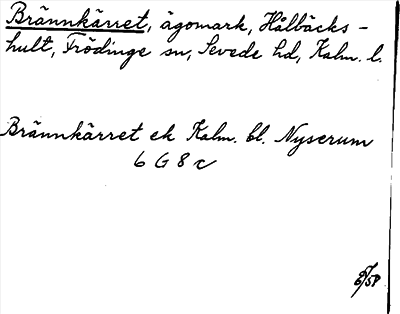 Brännkärret, ägomark, Hålbäcks-
hult, Frödinge sn, Sevede hd, Kalm. l.
Brännkärret ek Kalm. bl. Nyserum
6 G 8 c